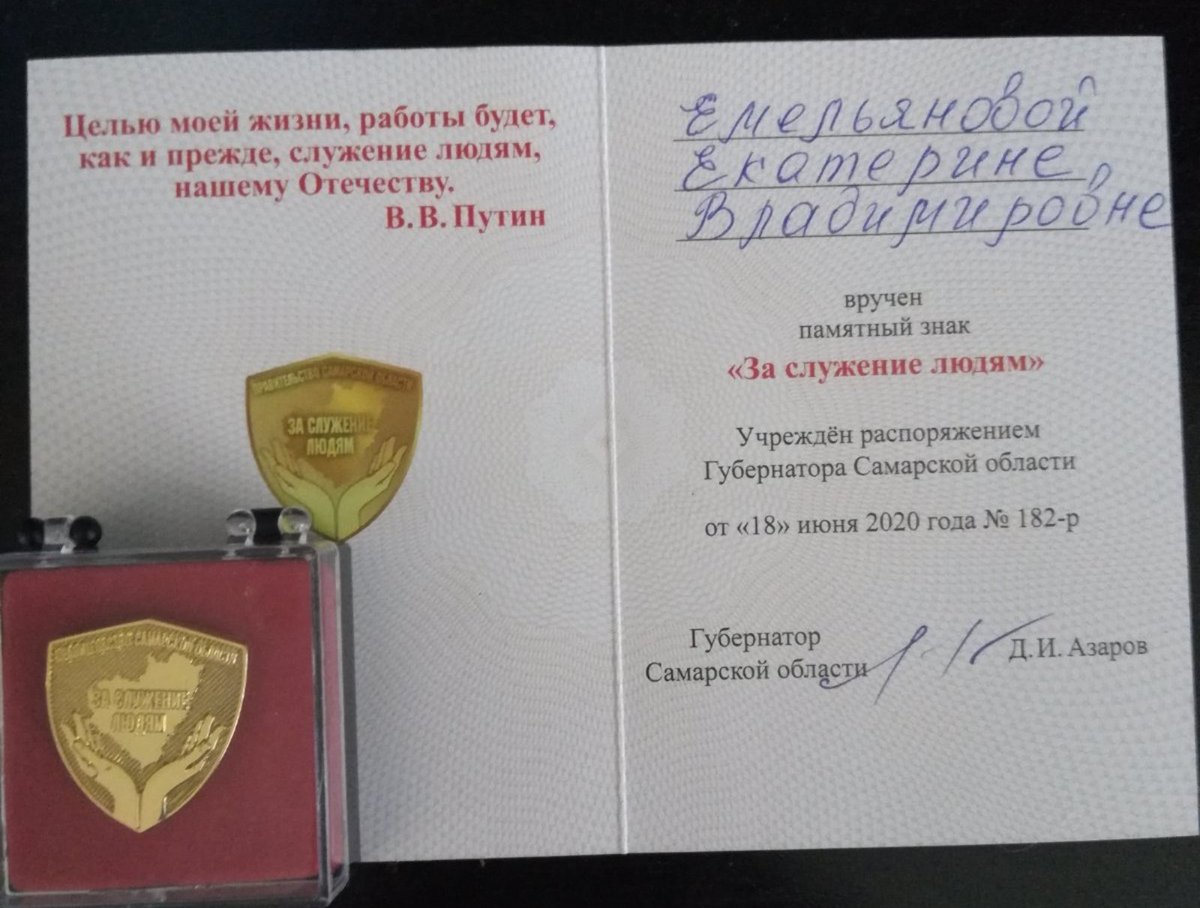 Целью моей жизни, работы будет,
как и прежде, служение людям,
нашему Отечеству.
В. В. Путин
ПРАВИТЕЛЬСТВО САМАРСКОЙ ОБЛАСТИ
ЗА СЛУЖЕНИЕ
ЛЮДЯМ
ПРАВИТЕЛЬСТВО САМАРСКОЙ ОБЛАСТИ
ЗА СЛУЖЕНИЕ
ЛЮДЯМ
Емельяновой
Екатерине
Владимировне
вручен
памятный знак
«За служение людям»
Учреждён распоряжением
Губернатора Самарской области
от «18» июня 2020 года № 182-р
Губернатор
Самарской области
Д. И. Азаров